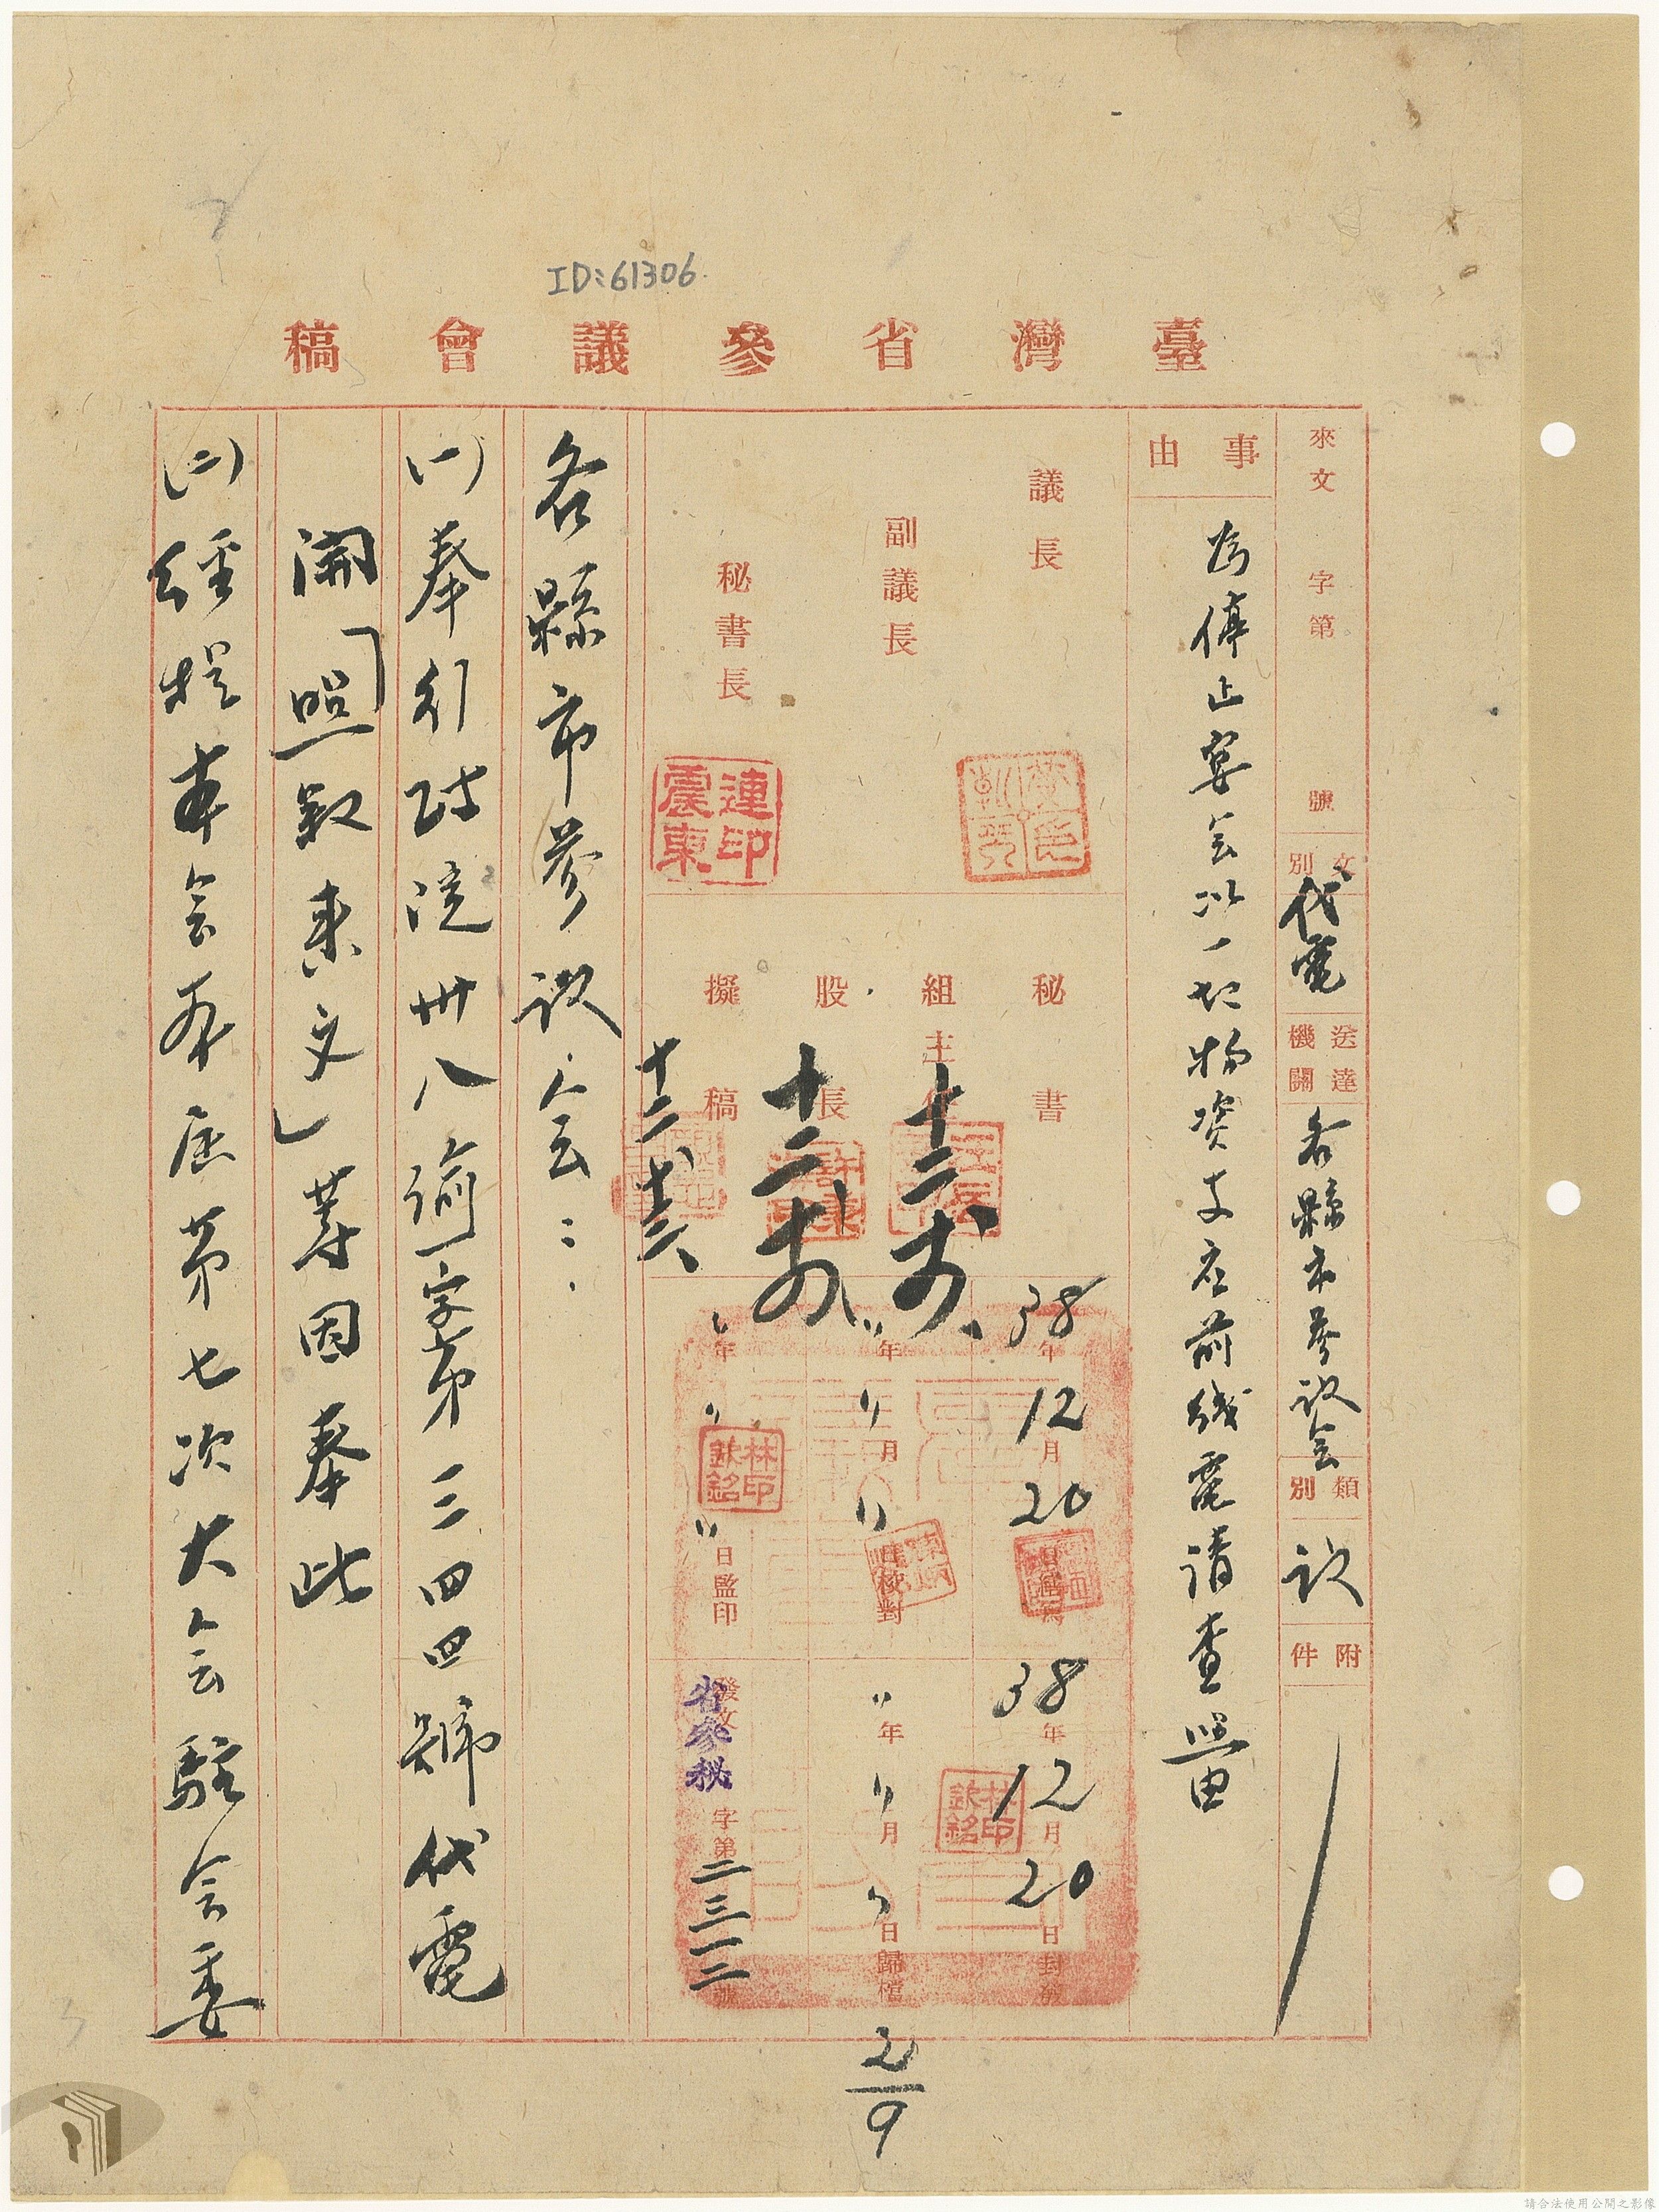 ID:61306
臺灣省參議會稿
來文 字第 號
文別 代電
送達機關 各縣市參議会
類別 议
附件
事由
為停止宴会以一切物資支应前线電请查照由
議長
副議長
秘書長
連震東印
秘書
組主任
股長
擬稿
十二、
38年12月20日繕寫
〃年〃月〃日校對
〃年〃月〃日監印
林欽銘印
38年12月20日封發
林欽銘印
〃年〃月〃日歸檔
發文 省參秘 字第二三一二號
各縣市參议会：
(一)奉行政院卅八渝一字第三四四號代電
開「照叙来文」等因奉此
(二)经提本会第一届第七次大会駐会委
2/9
請合法使用公開之影像